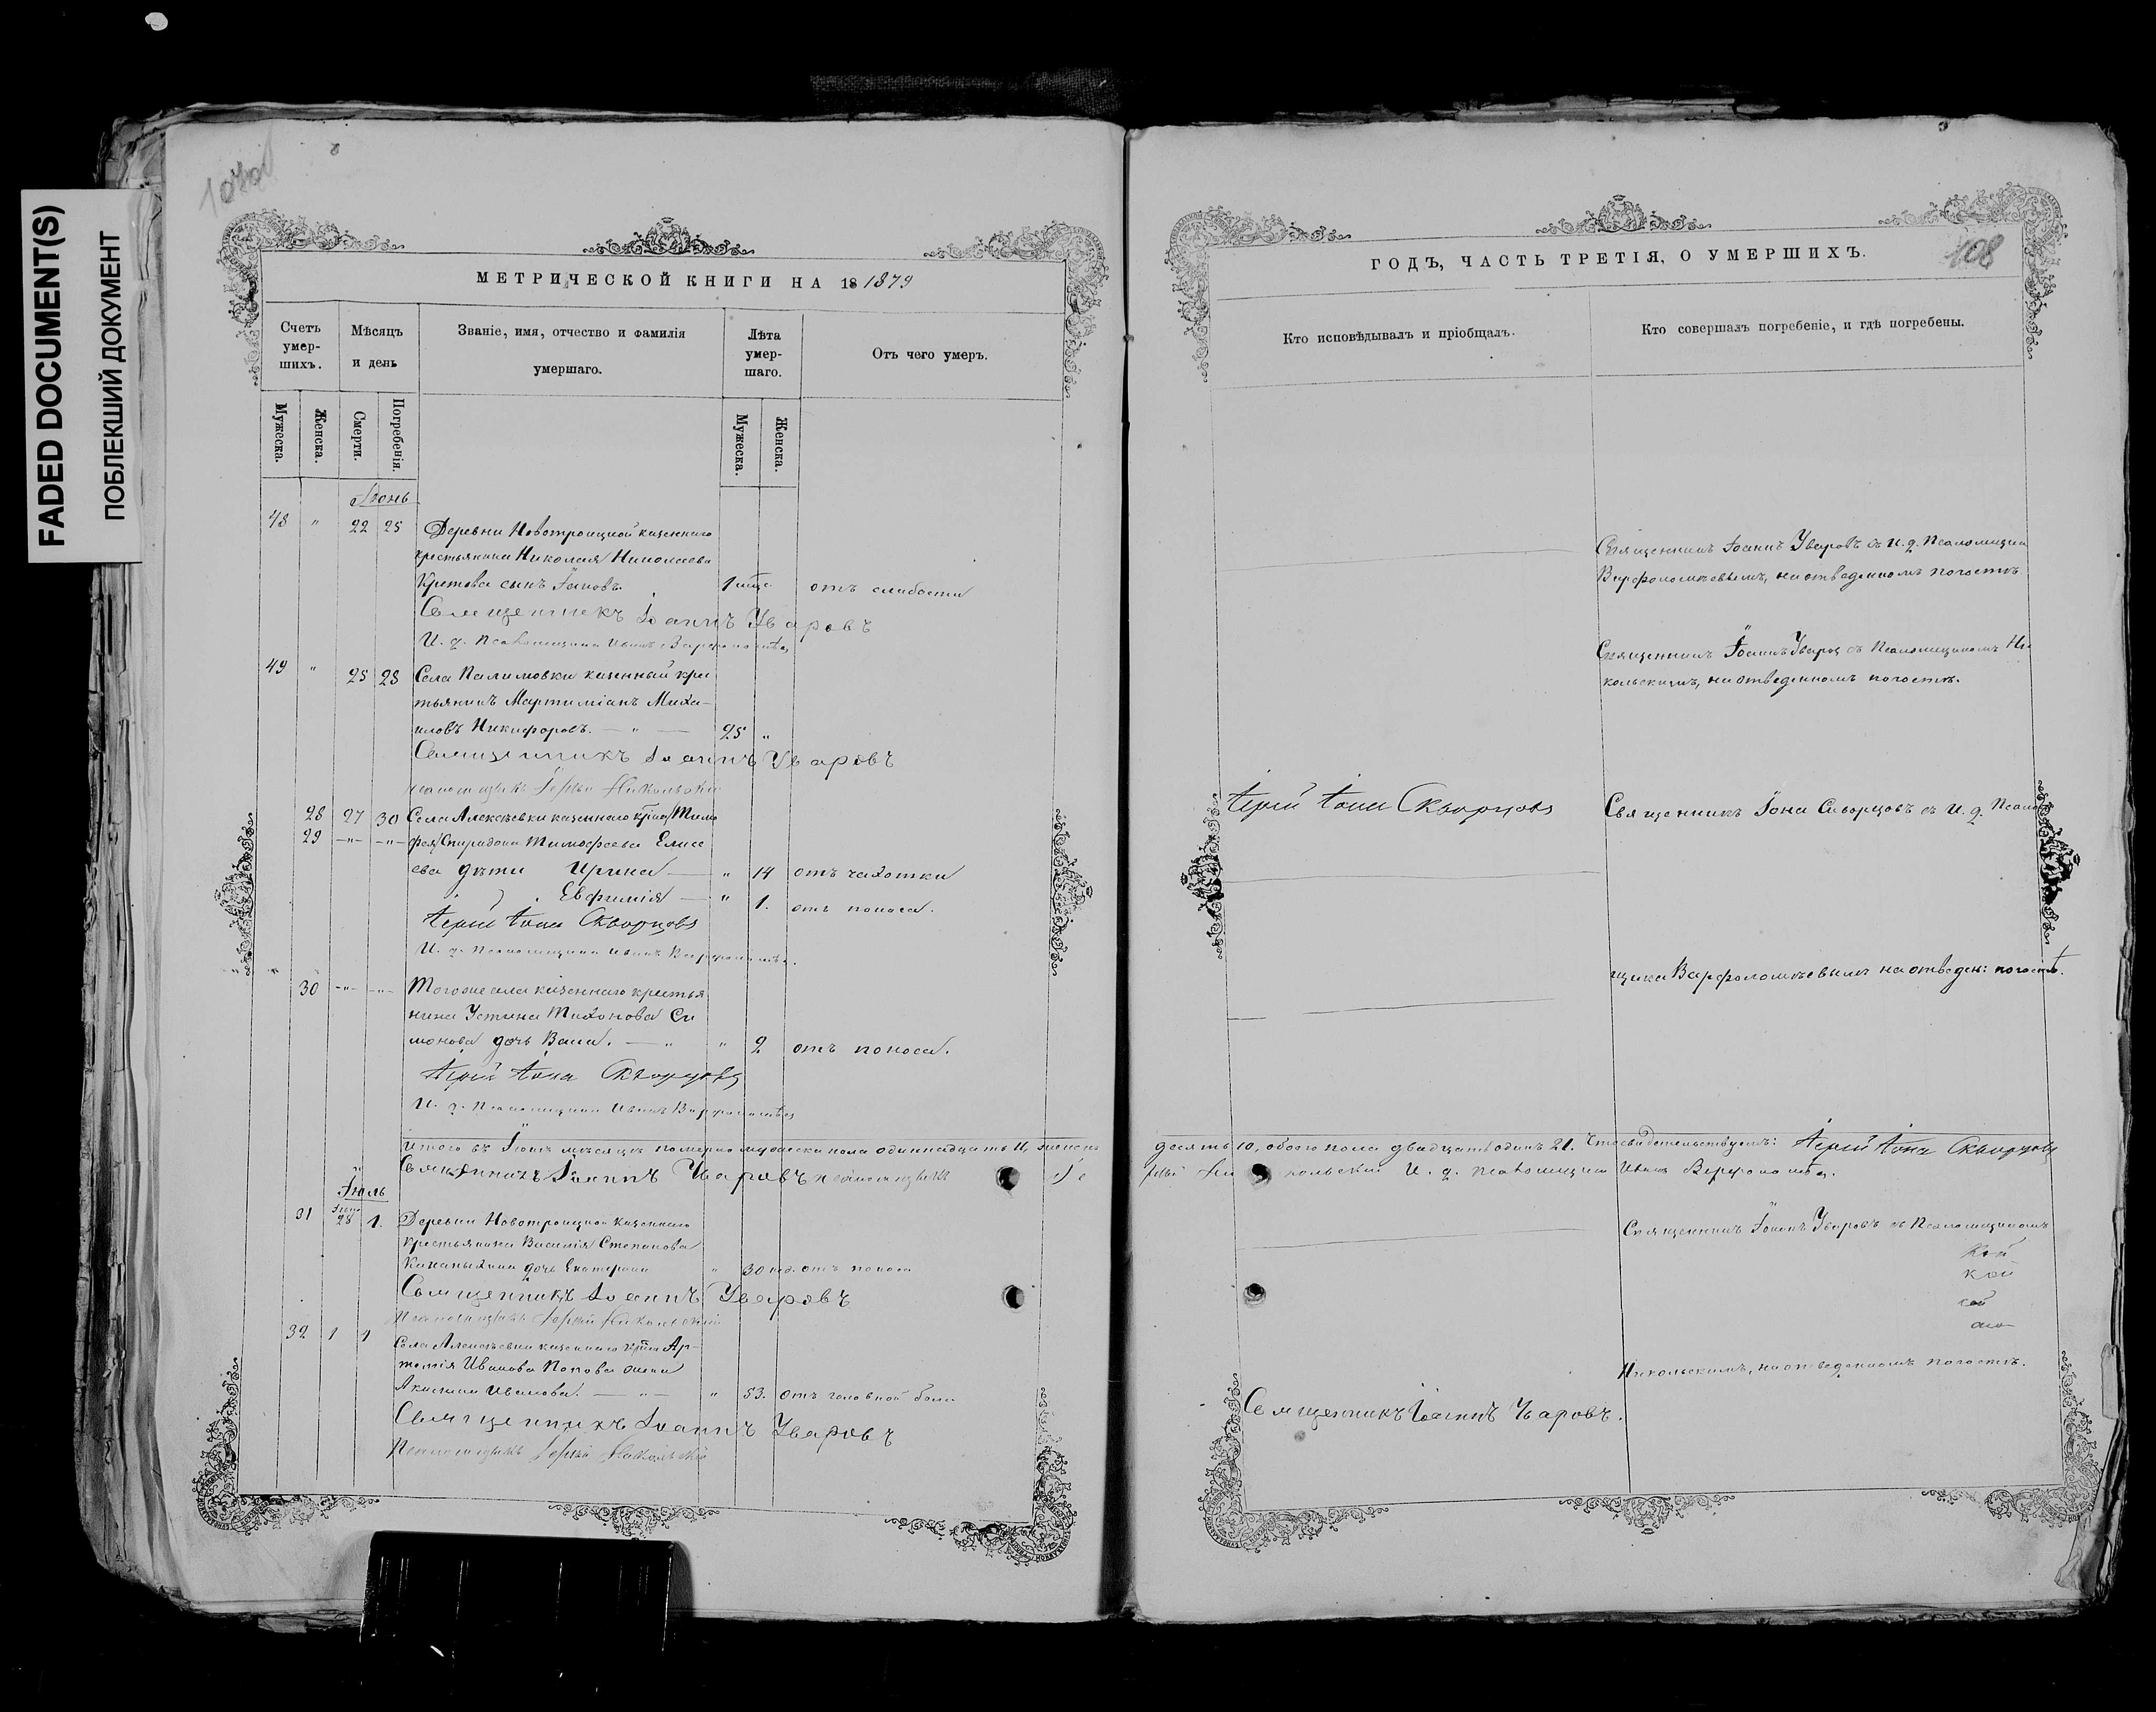 FADED DOCUMENT(S)
ПОБЛЕКШИЙ ДОКУМЕНТ
МЕТРИЧЕСКОЙ КНИГИ НА 18 1879
Счетъ умер-шихъ.
Мѣсяцъ и день
Званіе, имя, отчество и фамилія умершаго.
Лѣта умер-шаго.
Отъ чего умеръ.
Мужеска.
Женска.
Смерти.
Погребенія.
Мужеска.
Женска.
Іюнь
48 " 22 25 Деревни Новотроицкой казеннаго
крестьянина Николая Николаева
Кретова сынъ Іаковъ. отъ слабости
Священникъ Іоаннъ Уваровъ
И. д. Псаломщика Иванъ
49 " 25 28 Села Палимовки казенный крес
тьянинъ Мартиміанъ Миха-
иловъ Никифоровъ. — " — 25 "
Священникъ Іоаннъ Уваровъ
28 27 30 Села Алексѣевки казеннаго
29 —"— —"— Спиридона Тимофеева Елисе
ева дѣти Ирина — " 14 отъ чахотки
Евфимія — " 1. отъ поноса.
Іерей Іона Скворцовъ
И. д. Псаломщика Иванъ
30 —"— —"— Тогоже села казеннаго крестья
нина Устина Тихонова Си
монова дочь Васса. — " " 2 отъ поноса.
Іерей Іона Скворцовъ
И. д. Псаломщика Иванъ
Итого въ Іюнѣ мѣсяцѣ померло мужеска пола одиннадцать 11, женска
Священникъ Іоаннъ Уваровъ псаломщикъ
Іюль
31 Іюня 28 1. Деревни Новотроицкой казеннаго
крестьянина Василія Степанова
дочь Екатерина " отъ поноса
Священникъ Іоаннъ Уваровъ
Псаломщикъ Никольскій
32 1 1
Села Алексѣевки казеннаго Ар-
темія Иванова Попова жена
Акилина Иванова. — " — " 53. отъ головной боли
Священникъ Іоаннъ Уваровъ
Псаломщикъ Никольскій
ГОДЪ, ЧАСТЬ ТРЕТІЯ, О УМЕРШИХЪ.
108
Кто исповѣдывалъ и пріобщалъ.
Кто совершалъ погребеніе, и гдѣ погребены.
Священникъ Іоаннъ Уваровъ съ И. д. Псаломщика
Варфоломѣевымъ, на отведенномъ погостѣ
Священникъ Іоаннъ Уваровъ съ Псаломщикомъ Ни
кольскимъ, на отведенномъ погостѣ.
Іерей Іона Скворцовъ
Священникъ Іона Скворцовъ съ И. д. Псалом
щика Варфоломѣевымъ на отведен: погостѣ.
десять 10, обоего пола двадцать одинъ 21. Что свидетельствуемъ: Іерей Іона Скворцовъ
Никольскій И. д. псаломщика Иванъ
Священникъ Іоаннъ Уваровъ съ Псаломщикомъ
кой
кой
Никольскимъ, на отведенномъ погостѣ.
Священникъ Іоаннъ Уваровъ.